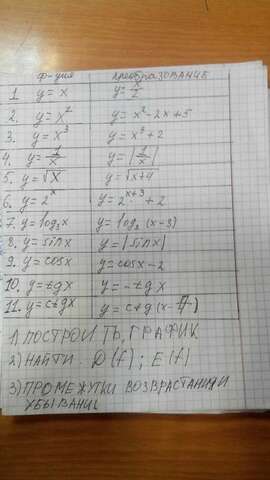 ф-ция преобразование
1 y = x y = x/2
2. y = x² y = x² - 2x + 5
3. y = x³ y = x³ + 2
4. y = 1/x y = |1/x|
5. y = √x y = √x+4
6. y = 2ˣ y = 2ˣ⁺³ + 2
7. y = log₂x y = log₂(x-3)
8. y = sinx y = |sinx|
9. y = cosx y = cosx - 2
10. y = tgx y = -tgx
11. y = ctgx y = ctg(x-
1) ПОСТРОИТЬ, ГРАФИК
2) НАЙТИ D(f); E(f)
3) ПРОМЕЖУТКИ ВОЗВРАСТАНИЯ И
УБЫВАНИЕ